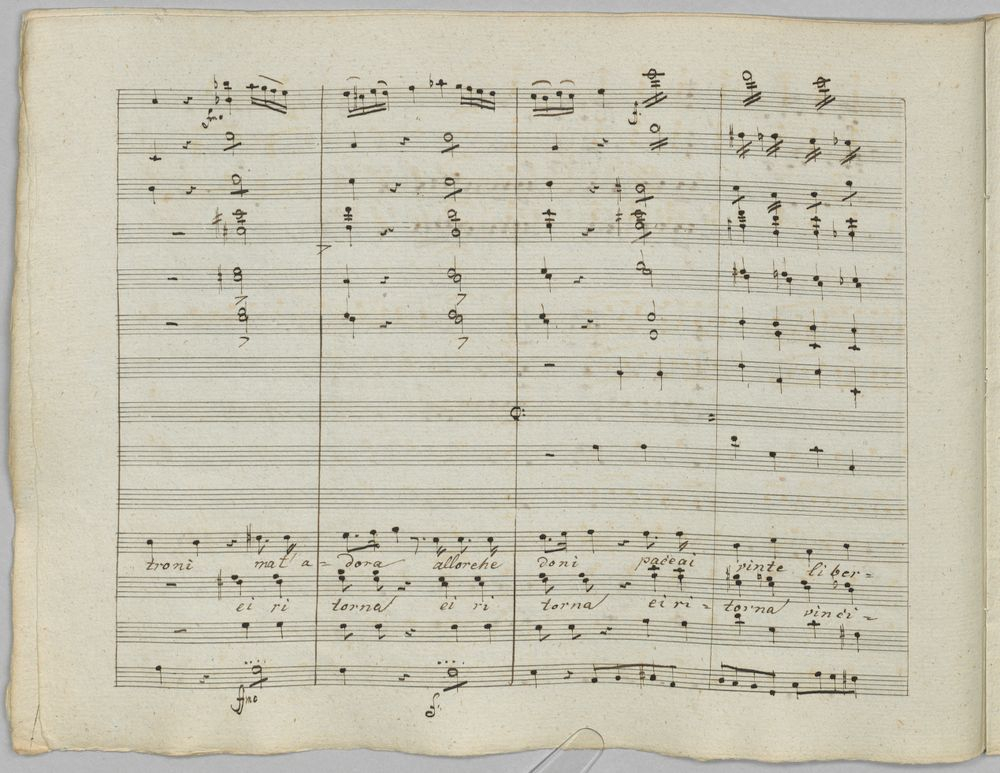 fmo
f:
troni mal a= dora allorche doni paceai vinte liber=
ei ri torna ei ri torna ei ri = torna vinci=
fmo f: